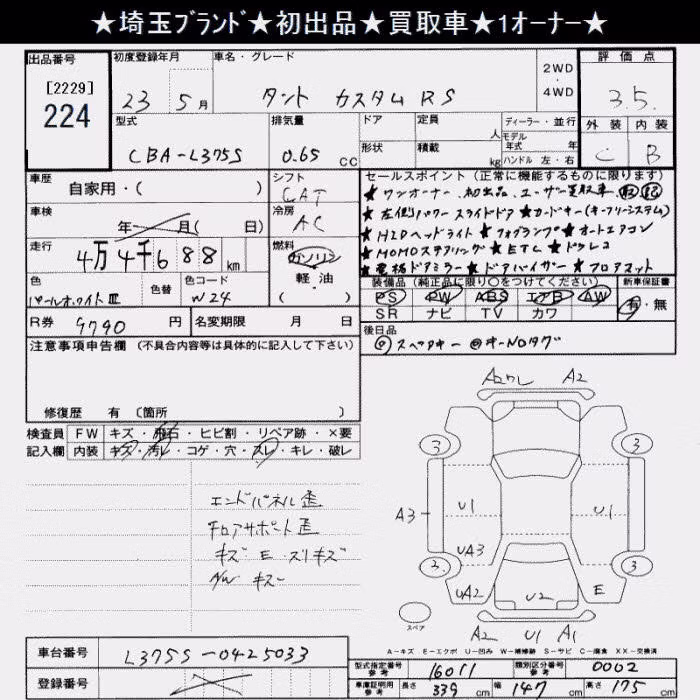 ★埼玉ﾌﾞﾗﾝﾄﾞ★初出品★買取車★1オーナー★
出品番号 初度登録年月 車名・グレード 2WD・4WD 評価点
[2229]
224
23年 5月 タント カスタムRS 3.5
型式 排気量 ドア 定員 人 ディーラー・並行 外装 内装
モデル年式 年
CBA-L375S 0.65 CC 形状 積載 kg ハンドル 左・右 C B
車歴 自家用・( ) シフト CAT セールスポイント(正常に機能するものに限ります)
★ワンオーナー、初出品、ユーザー買取車 取 記
車検 年 月( 日) 冷房 AC
★左側パワースライドドア ★カードキー(キーフリーシステム)
★HIDヘッドライト ★フォグランプ ★オートエアコン
走行 4万4千688km 燃料 ガソリン 軽・油 ( )
★MOMOステアリング ★ETC ★ドラレコ
★電格ドアミラー ★ドアバイザー ★フロアマット
色 色替 色コード
パールホワイトⅢ W24
装備品(純正品に限り○をつけてください) 新車保証書
PS PW ABS エアB AW 有・無
SR ナビ TV カワ
R券 9790円 名変期限 月 日
後日品
@スペアキー @キーNOタグ
注意事項申告欄(不具合内容等は具体的に記入して下さい)
修復歴 有(箇所 )
検査員 FW キズ・飛石・ヒビ割・リペア跡・×要
記入欄 内装 キズ・汚レ・コゲ・穴・スレ・キレ・破レ
エンドパネル歪
キズ E スリキズ
A2ワレ A2
3 3
A3 U1 U1
UA3
3 3
UA2 E
U2
スペア
A2 U1 A1
A-キズ E-エクボ U-凹み W-補修跡 S-サビ C-腐食 XX-交換済
車台番号 L375S-0425033
登録番号
型式指定番号参考 16011 類別区分番号参考 0002
車庫証明用参考 長さ 339cm 幅 147cm 高さ 175cm